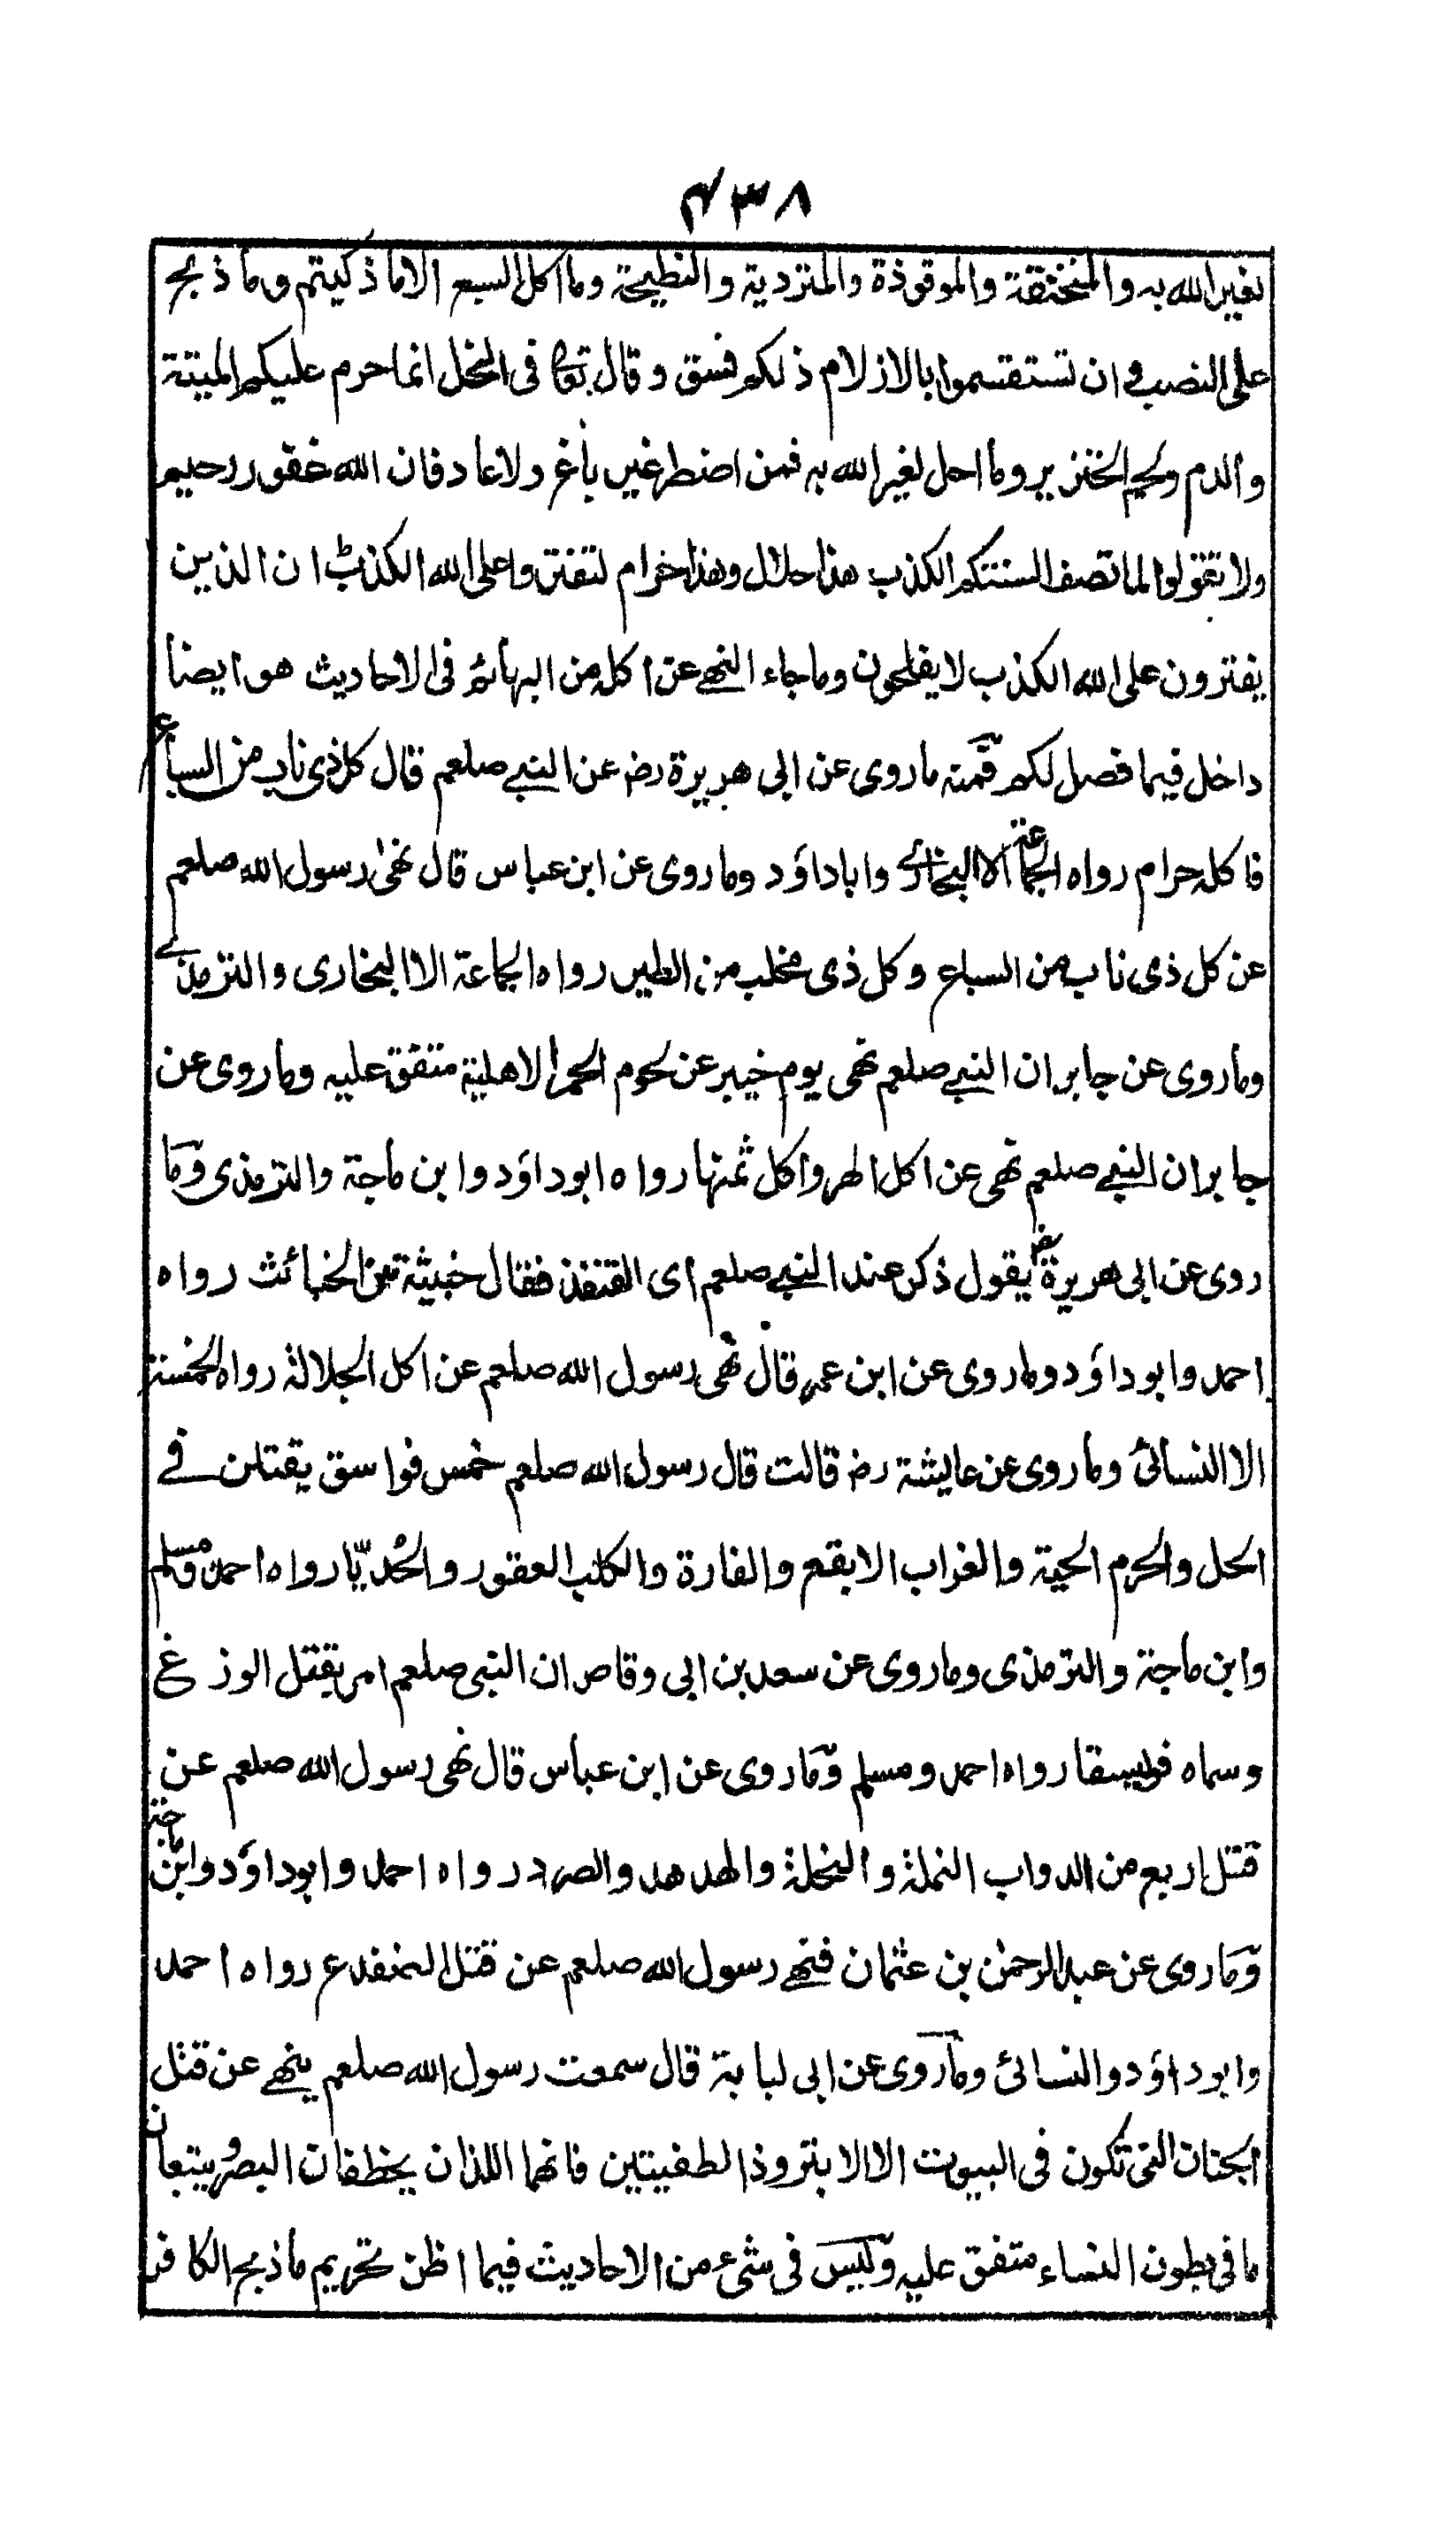 ۴۳۸
لغیر الله به والمنخنقة والموقوذة والمتردية والنطيحة وما اكل السبع الاما ذكيتم وما ذبح
على النصب وان تستقسموا بالازلام ذلكم فسق وقال تعا فى النحل انما حرم عليكم الميتة
والدم ولحم الخنزير وما احل لغير الله به فمن اضطر غير باغ ولا عاد فان الله غفور رحيم
ولا تقولوا لما تصف السنتكم الكذب هذا حلال وهذا حرام لتفتروا على الله الكذب ان الذين
يفترون على الله الكذب لا يفلحون وما جاء النهى عن اكله من البهائم فى الاحاديث هو ايضا
داخل فيما فصل لكم فمنه ما روى عن ابى هريرة رض عن النبى صلعم قال كل ذى ناب من السباع
فاكله حرام رواه الجماعة الا البخارى وابا داؤد وما روى عن ابن عباس قال نهى رسول الله صلعم
عن كل ذى ناب من السباع وكل ذى مخلب من الطير رواه الجماعة الا البخارى والترمذى
وما روى عن جابر ان النبى صلعم نهى يوم خيبر عن لحوم الحمر الاهلية متفق عليه وما روى عن
جابر ان النبى صلعم نهى عن اكل الهر واكل ثمنها رواه ابوداؤد وابن ماجة والترمذى وما
روى عن ابى هريرة رض يقول ذكر عند النبى صلعم اى القنفذ فقال خبيثة من الخبائث رواه
احمد وابوداؤد وما روى عن ابن عمر قال نهى رسول الله صلعم عن اكل الجلالة رواه الخمسة
الا النسائى وما روى عن عايشة رض قالت قال رسول الله صلعم خمس فواسق يقتلن فے
الحل والحرم الحية والغراب الابقع والفارة والكلب العقور والحُديّا رواه احمد ومسلم
وابن ماجة والترمذى وما روى عن سعد بن ابى وقاص ان النبى صلعم امر بقتل الوزغ
وسماه فويسقا رواه احمد ومسلم وما روى عن ابن عباس قال نهى رسول الله صلعم عن
قتل اربع من الدواب النملة والنحلة والهدهد والصرد رواه احمد وابوداؤد وابن ماجة
وما روى عن عبد الرحمن بن عثمان فنهى رسول الله صلعم عن قتل الضفدع رواه احمد
وابوداؤد والنسائى وما روى عن ابى لبابة قال سمعت رسول الله صلعم ينهى عن قتل
الجنان التى تكون فى البيوت الا الابتر وذا الطفيتين فانهما اللذان يخطفان البصر ويتبعان
ما فى بطون النساء متفق عليه وليس فى شىء من الاحاديث فيما اظن تحريم ما ذبح الكافر